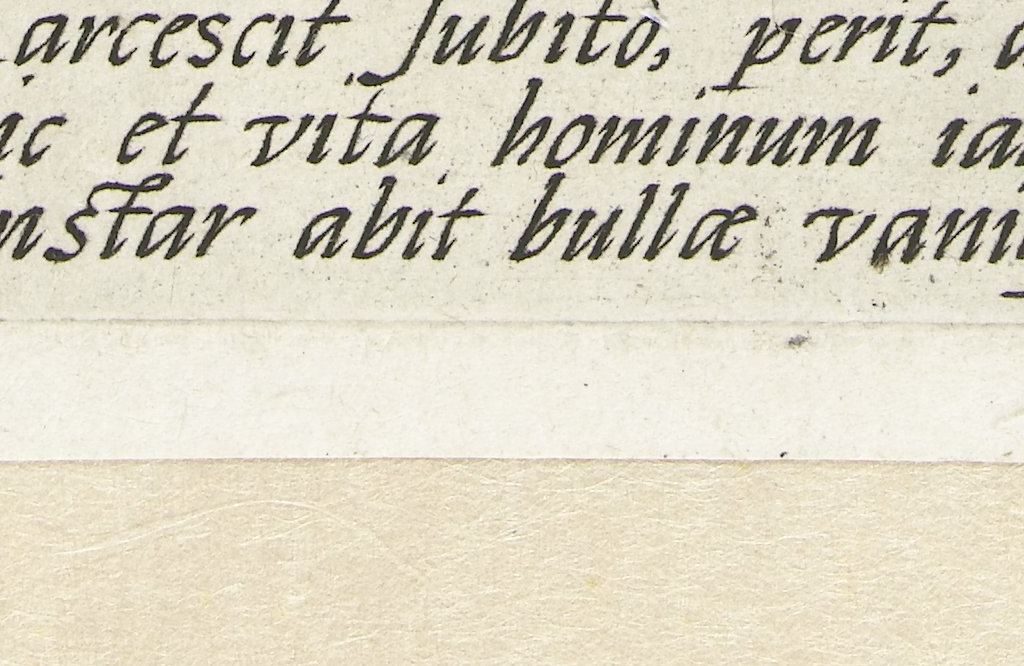 arcescit subitò, perit,
ic et vita hominum ia
nstar abit bullæ vani